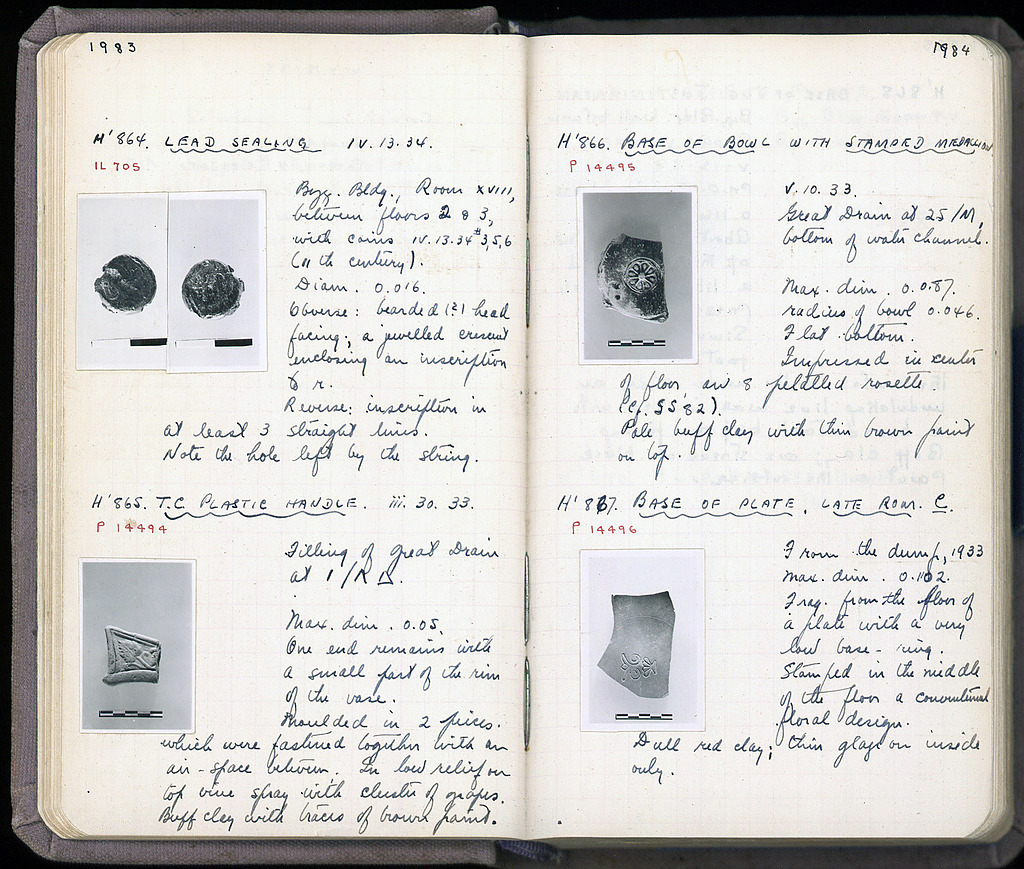 1983
H'864. LEAD SEALING IV.13.34.
IL 705
Byz. Bldg., Room XVIII,
between floors 2 & 3,
with coins IV.13.34 #3,5,6
(11th century).
Diam. 0.016.
Obverse: bearded (?) head
facing; a jewelled crescent
enclosing an inscription
to r.
Reverse: inscription in
at least 3 straight lines.
Note the hole left by the string.
H'865. T.C PLASTIC HANDLE. iii. 30. 33.
P 14494
Filling of Great Drain
at
Max. dim. 0.05.
One end remains with
a small part of the rim
of the vase.
Moulded in 2 pieces.
which were fastened together with an
air-space between. In low relief on
top vine spray with cluster of grapes.
Buff clay with traces of brown paint.
1984
H'866. BASE OF BOWL WITH STAMPED MEDALLION
P 14495
V.10.33.
Great Drain at 25/M,
bottom of water channel.
Max. dim. 0.087.
radius of bowl 0.046.
Flat bottom.
Impressed in center
of floor, an 8 petalled rosette
(Cf. SS 82).
Pale buff clay with thin brown paint
on top.
H'867. BASE OF PLATE, LATE ROM. C.
P 14496
From the dump, 1933
Max. dim. 0.102.
Frag. from the floor of
a plate with a very
low base-ring.
Stamped in the middle
of the floor a conventional
floral design.
Dull red clay; thin glaze on inside
only.